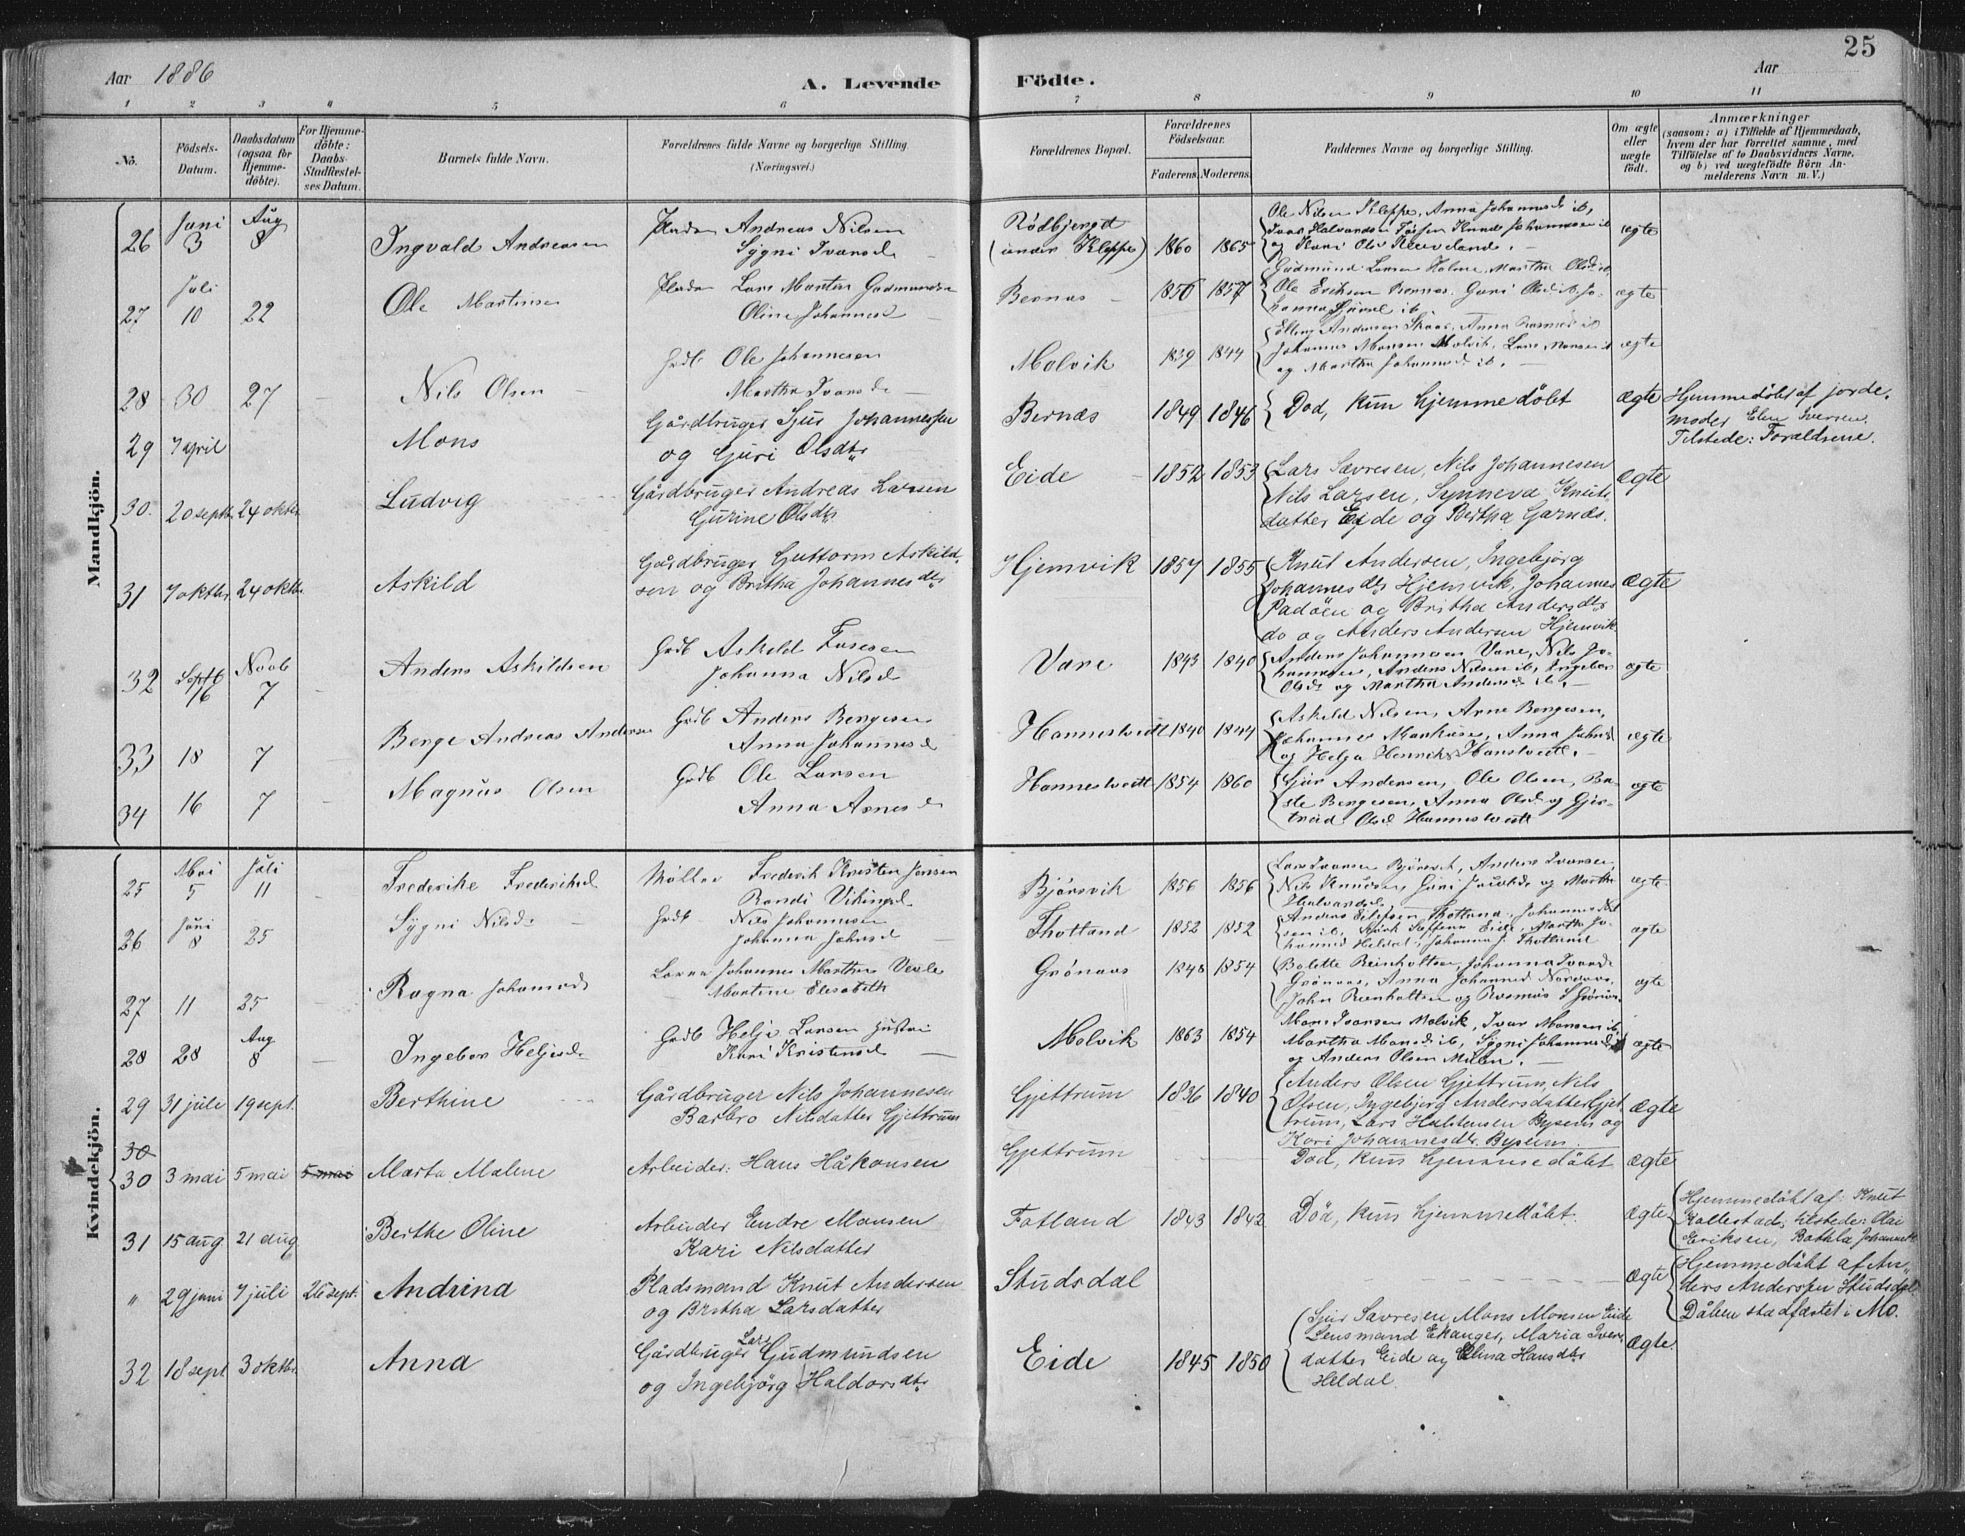 25
Aar 1886
A. Levende Födte.
Aar
1 2 3 4 5 6 7 8 9 10 11
No.
Födsels-Datum.
Daabsdatum (ogsaa for Hjemme-döbte).
For Hjemme-döbte: Daabs-Stadfæstel-ses Datum.
Barnets fulde Navn.
Forældrenes fulde Navne og borgerlige Stilling (Næringsvei.)
Forældrenes Bopæl.
Forældrenes Födselsaar.
Faderens. Moderens.
Faddernes Navne og borgerlige Stilling.
Om ægte eller uægte födt.
Anmærkninger
(saasom: a) i Tilfælde af Hjemmedaab,
hvem der har forrettet samme, med
Tilföielse af to Daabsvidners Navne,
og b) ved uægtefödte Börn An-
melderens Navn m. V.)
Mandkjön.
26 Juni 3 Aug 8 Ingvald Andreasen
Andreas Nilsen
Sygni Ivarsd
(under Kleppe) 1860 1865
Ole Nilsen Kleppe, Anna Johannesd ib,
ægte
27 Juli 10 22 Ole Martinsen
Lars Martin Gudmundsen
Oline Johannesd
Bernæs 1856 1857
Gudmund Larsen Holme, Martha Olsd ib
Ole Eriksen Bernæs, Guri Olsd ib
ægte
28 30 27 Nils Olsen
Gadb Ole Johannesen
Martha Ivarsd
Molvik 1839 1844
Johannes Monsen Molvik, Lars Monsen ib
og Martha Johannesd ib.
ægte
29 7 april Mons
Gårdbruger Sjur Johannessen
og Guri Olsdtr
Bernæs 1849 1846
Död, kun hjemmedöbt ægte
Hjemmedöbt af jorde-
moder Elen Iversen.
Tilstede: Forældrene.
30. 20 septbr 24 oktbr. Ludvig
Gårdbruger Andreas Larsen
Gurine Olsdtr
Eide 1852 1853
Lars Sævresen, Nils Johannesen
Nils Larsen, Synneva Knuts
datter Eide og Bertha Garnæs.
ægte
31 7 oktbr 24 oktbr. Askild
Gårdbruger Guttorm Askild-
sen og Britha Johannesdtr
Hjemvik 1857 1855
Knut Andersen, Ingebjörg
Johannesdtr Hjemvik, Johannes
Padöen og Britha Andersdtr
do og Anders Andersen Hjemvik
ægte
32 Septb 6 Novb 7 Anders Askildsen
Gadb Askeld
Johanna Nilsd
Vare 1843 1840
Anders Johannesen Vare, Nils Jo-
hannesen, Anders Nilsen ib, Ingebor
Olsd og Martha Andersd ib.
ægte
33 18 7 Berge Andreas Andersen
Gadb Anders Bergesen
Anna Johannesd
Hannestvedt 1840 1844
Askeld Nilsen, Arne Bergesen,
ægte
34 16 7 Magnus Olsen
Gadb Ole Larsen
Anna Arnesd
Hannestvedt 1854 1860
Sjur Andersen, Ole Olsen,
Bergesen, Anna Olsd og Gjer-
trud Olsd Hannestvedt
ægte
Kvindekjön.
25 Mai 5 Juli 11 Frederike Frederiksd
Möller Frederik Kristen Jensen
Randi Vikingsd
Bjørsvik 1856 1856
ægte
26 Juni 8 25 Sygni Nilsd
Gadb Nils Johannesen
Johanna Johnsd
Thotland 1852 1852
ægte
27 11 25 Ragna Johannesd
Johannes Marthin
Martine Elisabeth
Grønaas 1848 1854
Bolette Reinholtsen, Johanna Ivarsd
ægte
28 28 Aug 8 Ingebor Heljesd
Gadb Helje Larsen
Kari Kristensd
Molvik 1863 1854
Mons Ivarsen Molvik, Ivar Monsen ib
Martha Monsd ib, Sygni Johannesd
og Anders Olsen
ægte
29 31 juli 19 sept. Berthine
Gårdbruger Nils Johannesen
Barbro Nilsdatter Gjettrum
Gjettrum 1836 1840
Anders Olsen Gjettrum, Nils
Olsen, Ingebjörg Andersdatter Gjet
trum, Lars Halstensen Byseim og
Kari Johannesdtr. Byseim.
ægte
30
30 3 mai 5 mai 5 mai Marta Malene
Arbeider: Hans Håkonsen
Gjettrum
Död, kun hjemmedöbt ægte
31 15 aug 21 aug Berthe Oline
Arbeider Endre Monsen
Kari Nilsdatter
Fotland 1843 1842
Död, kun hjemmedöbt. ægte
Hjemmedöbt af: Knut
Kallestad; tilstede: Olai
Eriksen, Bothla
" 29 juni 7 juli 26 sept. Andrina
Pladsmand Knut Andersen
og Britha Larsdatter
Studsdal
ægte
Hjemmedöbt af An-
ders Anderssen Studsdal
Dåben stadfæstet i Mo.
32 18 sept 3 oktbr. Anna
Gårdbruger Lars Gudmundsen
og Ingebjörg Haldorsdtr
Eide 1845 1850
Sjur Sævresen, Mons Monsen Eide
Lensmand Ekanger, Maria Ivers
datter Eide og Elina Hansdtr
Heldal.
ægte